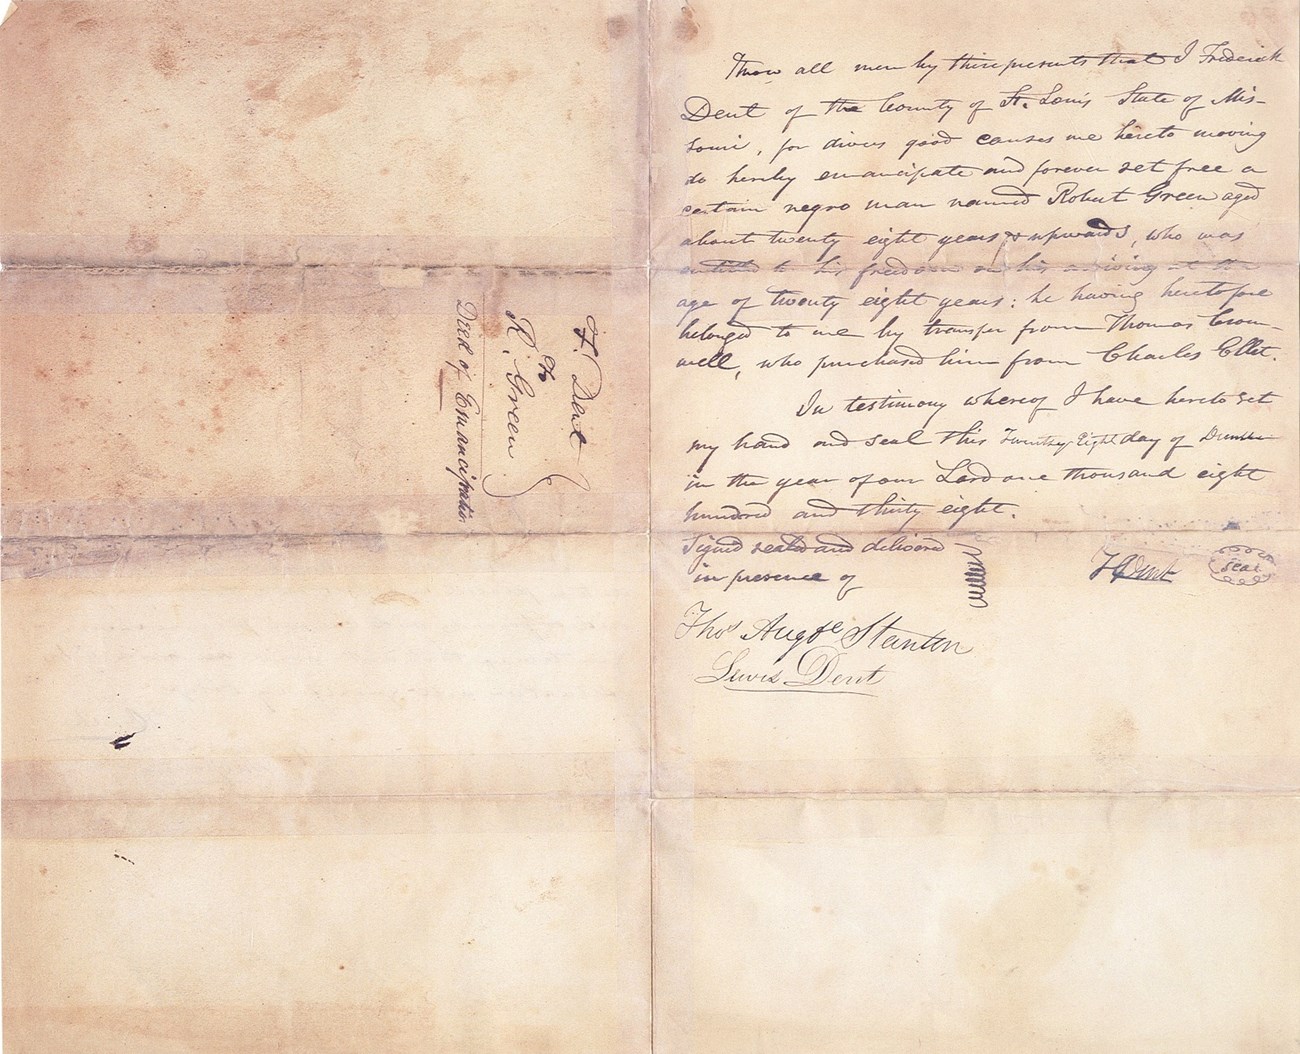 F. Dent
to
R. Green
Deed of Emancipation
Know all men by these presents that I Frederick
Dent of the County of St. Louis State of Mis-
souri, for divers good causes me hereto moving
do hereby emancipate and forever set free a
certain negro man named Robert Green aged
about twenty eight years & upwards, who was
entitled to his freedom on his arriving at the
age of twenty eight years: he having heretofore
belonged to me by transfer from Thomas Crom-
well, who purchased him from Charles Ellet.
In testimony whereof I have hereto set
my hand and seal this Twenty Eight day of December
in the year of our Lord one thousand eight
hundred and thirty eight.
Signed sealed and delivered
in presence of
F Dent
seal
Thos Augte Stanton
Lewis Dent